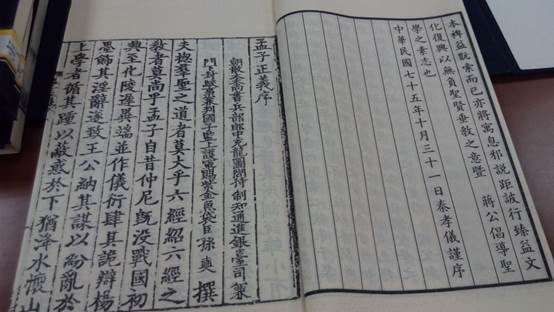 本裨益翫索而已亦將寓息邪說距詖行臻益文
化復興以無負聖賢垂教之意暨 蔣公倡導聖
學之素志也
中華民國七十五年十月三十一日秦孝儀謹序
孟子正義序
朝散大夫尚書兵部郎中充龍圖閣待制知通進銀臺司兼
門下封駁事兼判國子監上護軍賜紫金魚袋臣孫奭撰
夫摠羣聖之道者莫大乎六經紹六經之
教者莫尚乎孟子自昔仲尼既没戰國初
興至化陵遲異端並作儀衍肆其詭辯楊
墨飾其淫辭遂致王公納其謀以紛亂於
上學者循其踵以蔽惑於下猶洚水懷山